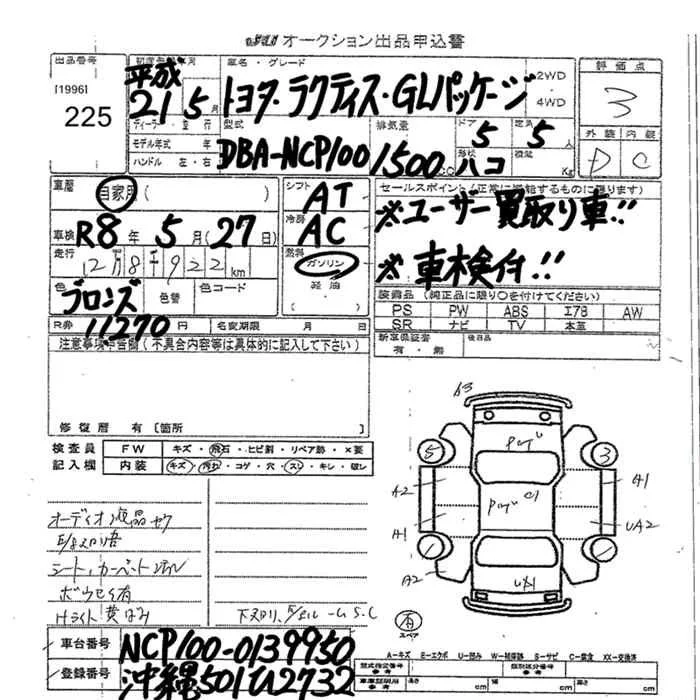 オークション出品申込書
出品番号
[1996]
225
初度登録年月
平成
21 5月
車名・グレード
トヨタ・ラクティス・GLパッケージ
2WD
・
4WD
評価点
3
外装 内装
D C
ディーラー・並行
モデル年式 年
ハンドル 左・右
型式
DBA-NCP100
排気量
1500 CC
ドア
5
定員
5 人
形状
ハコ
積載
Kg
車歴
自家用 (
車検
R8年 5月(27日)
走行
12万8千922km
色
ブロンズ
色替
色コード
シフト
AT
冷房
AC
燃料
ガソリン
・
軽油
セールスポイント(正常に機能するものに限ります)
※ユーザー買取り車!!
※車検付!!
装備品 (純正品に限り〇を付けてください)
PS PW ABS エアB AW
SR ナビ TV 本革
新車保証書
有・無
後日品
R券
11270 円
名変期限 月 日
注意事項申告欄(不具合内容等は具体的に記入して下さい)
修復歴 有〔箇所 〕
検査員
記入欄
FW キズ・飛石・ヒビ割・リペア跡・×要
内装 キズ・汚れ・コゲ・穴・スレ・キレ・破レ
オーディオ液晶
シート、カーペット
Hライト黄ばみ
下スリ、
A3
5
3
A2
A1
A1
UA2
A2
UX1
有
スペア
車台番号
NCP100-0139950
登録番号
沖縄501む2732
A-キズ E-エクボ U-凹み W-補修跡 S-サビ C-腐食 XX-交換済
型式指定番号
参考
類別区分番号
参考
長さ cm
幅 cm
高さ cm